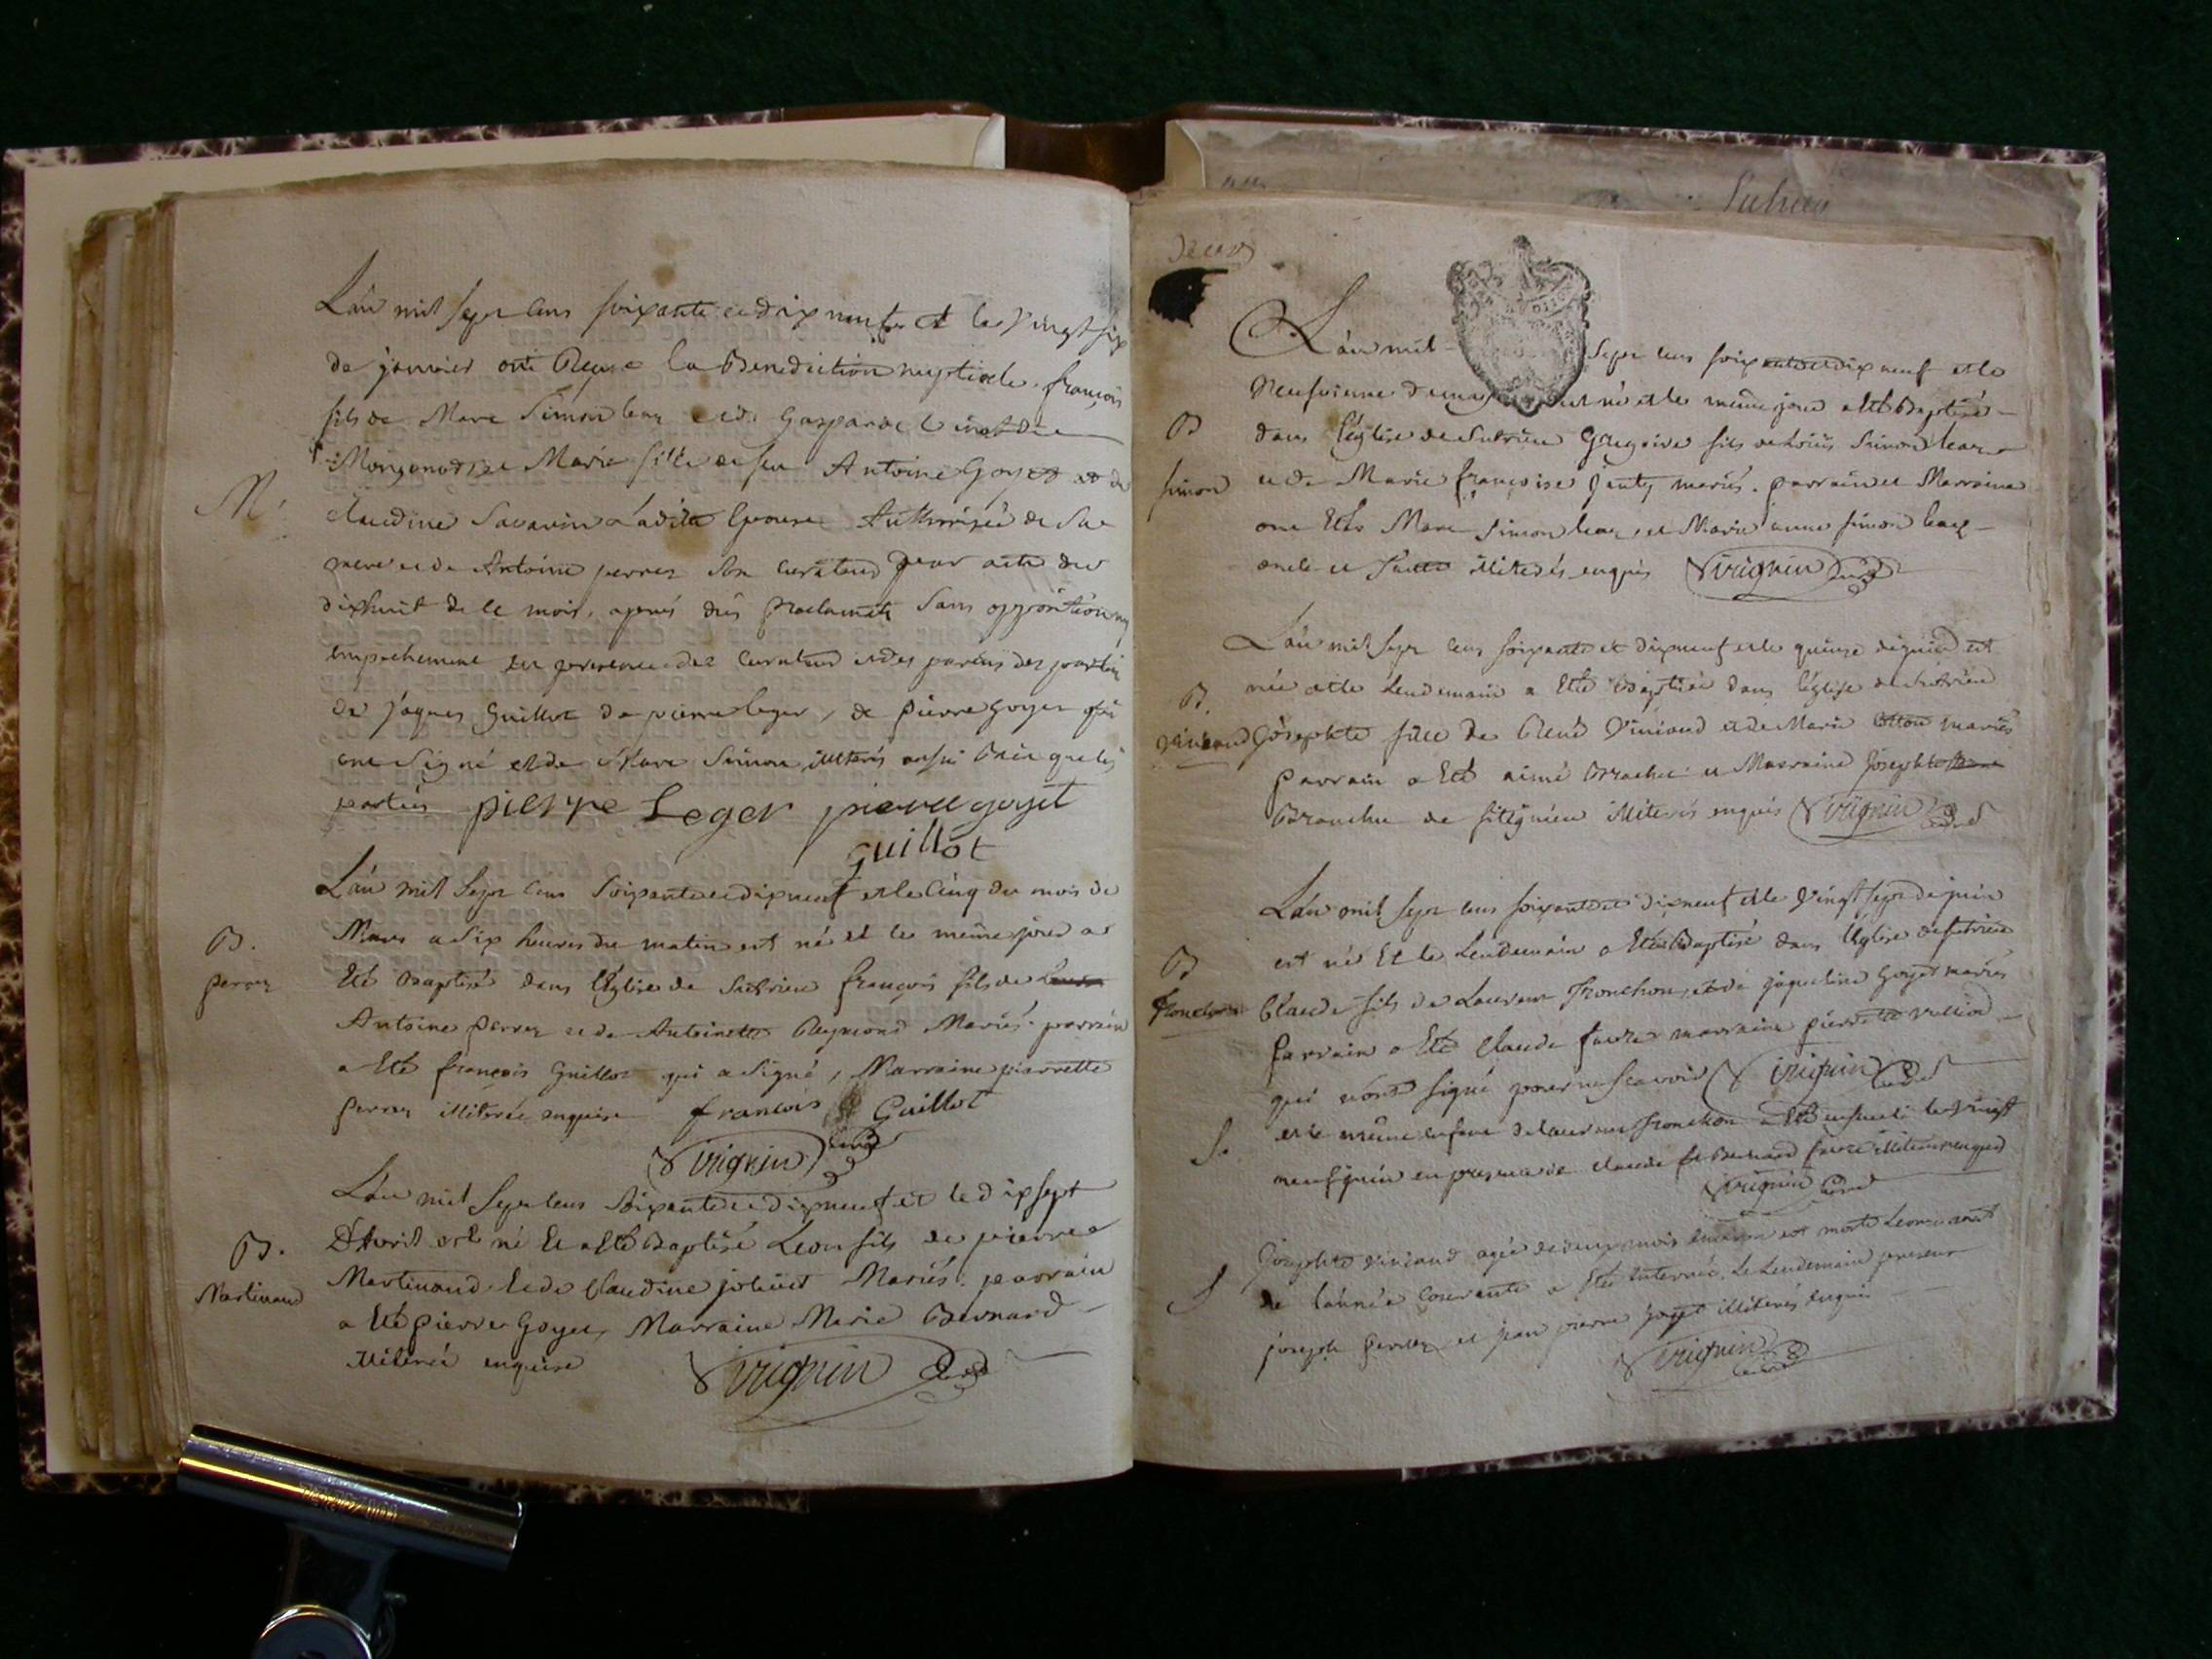 L'an mil sept cens soixante et dix neuf et le vingt six
de janvier ont Reçue la Benediction nuptiale, françois
fils de Marc Simon et de Gasparde
et Marie fille de feu Antoine Goyet et de
M.
claudine Savarin Ladite Epouse Authorisée de Sa
mere et de Antoine perrer Son curateur par acte du
dixhuit de ce mois, aprés dus Proclamats Sans opposition ny
empechement en presence des curateur et des parens des parties
de jaques Guillot de pierre leger, de pierre goyet qui
ont Signé et de Marc Simon illiterés ainsi que les
parties pierre Leger pierre goyet
guillot
L'an mil Sept cens Soixante et dix neuf et le Cinq du mois de
B.
Mars a Six heures du matin est né et le même jour a
perrer
Eté Baptisé dans l'Eglise de Sutrieu françois fils de
Antoine perrer et de Antoinette Reymond Mariés. parrain
a Eté françois Guillot qui a Signé, Marraine pierrette
perrer illiterée enquise francois Guillot
Vrignin curé
L'an mil Sept cens Soixante et dix neuf et le dix sept
B.
D'Avril est né Et a Eté Baptisé Leon fils de pierre
Martinaud
Martinaud Et de Claudine Mariés. parrain
a Eté pierre Goyet, Marraine Marie Bernard
illiterée enquise Vrignin curé
L'an mil Sept cens soixante et dix neuf et le
Neuvieme de may est né et le même jour a Eté Baptisé
B
dans l'église de Sutrieu Gregoire fils de Loüis Simon
simon
et de Marie françoise mariés. parrain et Marraine
ont Eté Marc Simon et Marie anne simon
oncle et Tante illiterés enquis Vrignin curé
L'an mil sept cens soixante et dix neuf et le quinze de juin est
B.
née et le Lendemain a Eté Baptisée dans l'église de Sutrieu
Viniand
Josephte fille de René Viniand et de Marie mariés
parrain a Eté aimé et Marraine Josephte
de illiterés enquis Vrignin curé
L'an mil sept cens soixante et dix neuf et le vingt sept de juin
B
est né Et le Lendemain a Eté Baptisé dans l'église de sutrieu
Tronchon
Claude fils de Laurent Tronchon, et de jaqueline Goyet mariés
parrain a Eté Claude favre marraine pierrette
qui n'ont signé pour ne scavoir Vrignin curé
S.
et le même enfant de laurent Tronchon a Eté enseveli le vingt
neuf juin en presence de claude et Bernard favre illiterés enquis
Vrignin curé
Josephte Viniand agée de deux mois environ est morte Le onze aoust
S
de l'année courante a Eté Enterrée Le Lendemain presens
joseph perrer et jean pierre goyet illiterés enquis
Vrignin curé